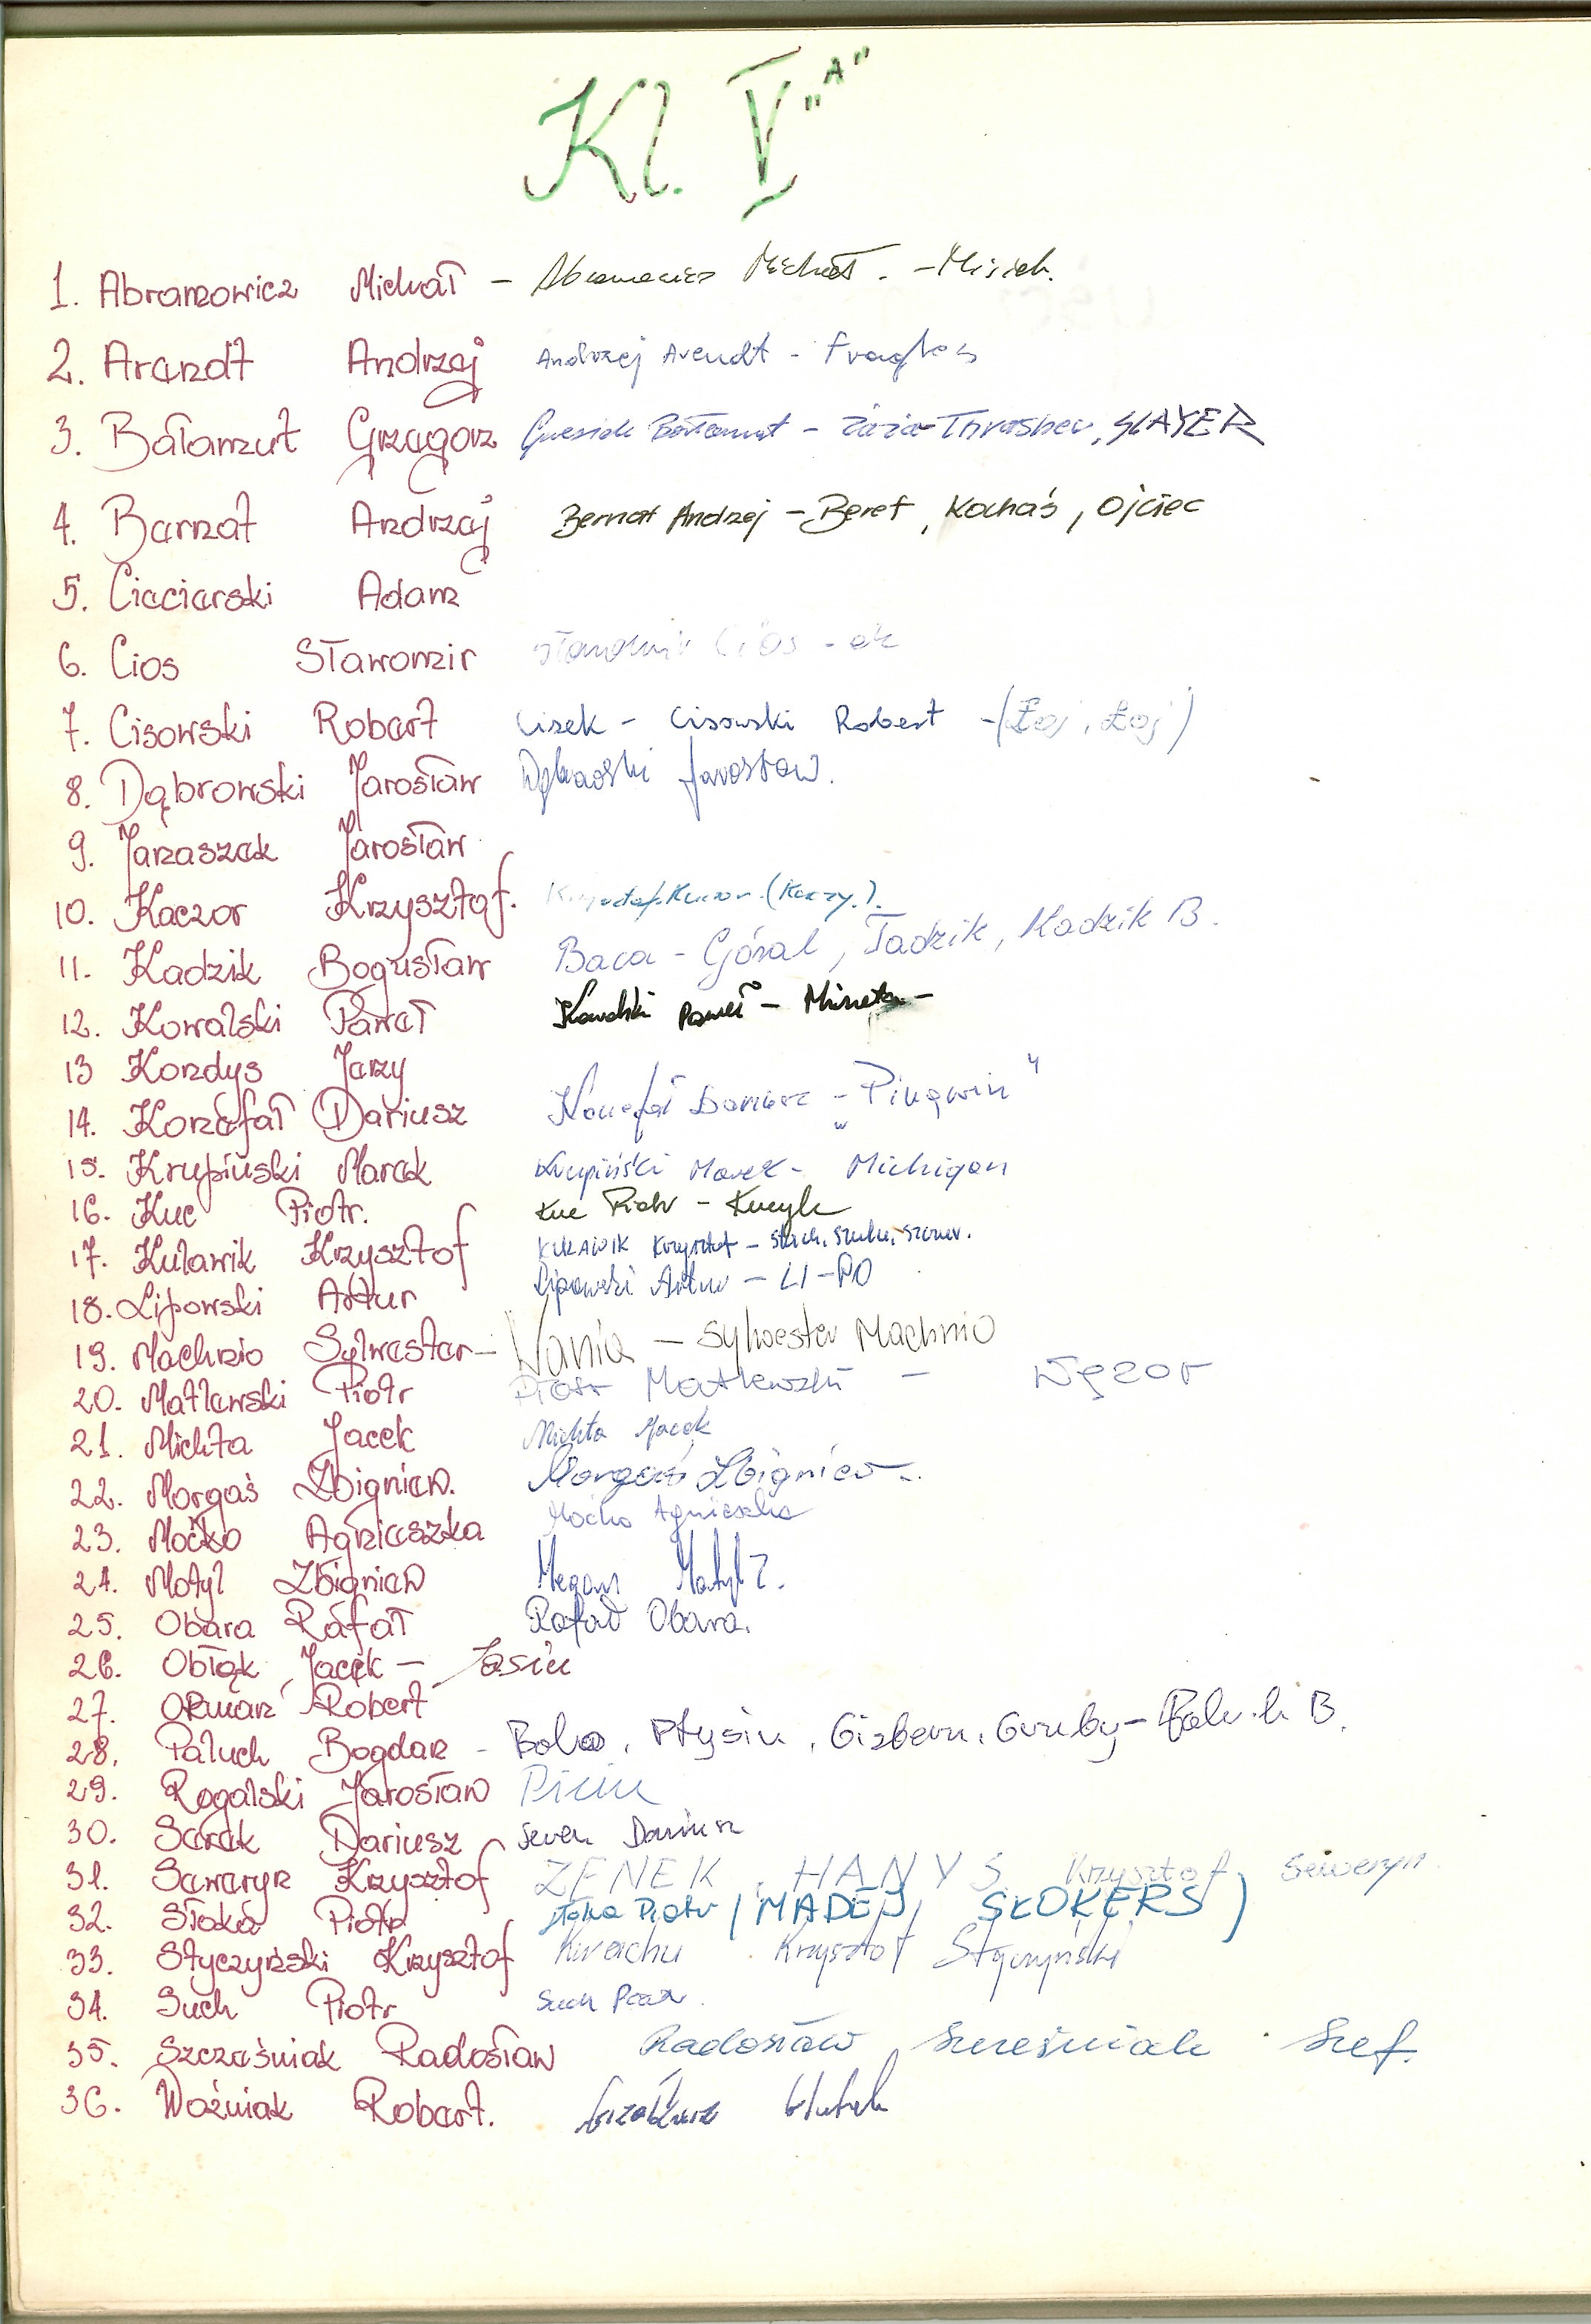 Kl. V „A"
1. Abramowicz Michał - Abramowicz Michał. - Misiek.
2. Arendt Andrzej Andrzej Arendt - Fragles
3. Bałamut Grzegorz Grzesiek Bałamut - Zizia-Thrasher, SLAYER
4. Bernat Andrzej Bernat Andrzej - Beret, Kochaś, Ojciec
5. Ciecierski Adam
6. Cios Sławomir Sławomir Cios - ek
7. Cisowski Robert Cisek - Cisowski Robert - (Łoj, Łoj)
8. Dąbrowski Jarosław Dąbrowski Jarosław.
9. Janaszek Jarosław
10. Kaczor Krzysztof. Krzysztof Kaczor (Kaczy.).
11. Kadzik Bogusław Baca - Góral, Tadzik, Kadzik B.
12. Kowalski Paweł Kowalski Paweł - Mineta -
13 Kondys Jerzy
14. Konefał Dariusz Konefał Dariusz - „Pingwin"
15. Krupiński Marek Krupiński Marek - Michigan
16. Kuc Piotr. Kuc Piotr - Kucyk
17. Kulawik Krzysztof KULAWIK Krzysztof -
18. Lipowski Artur Lipowski Artur - LI-PO
19. Machnio Sylwester - Wania - Sylwester Machnio
20. Matlewski Piotr Piotr Matlewski - Węzor
21. Michta Jacek Michta Jacek
22. Morgaś Zbigniew. Morgaś Zbigniew.
23. Moćko Agnieszka Moćko Agnieszka
24. Motyl Zbigniew Megan Motyl Z.
25. Obara Rafał Rafał Obara.
26. Obłąk Jacek - Jasiu
27. Robert
28. Paluch Bogdan - Bolo, Ptysiu, Gizbern, Gruby - Paluch B.
29. Rogalski Jarosław Piciu
30. Serek Dariusz Serek Dariusz
31. Seweryn Krzysztof ZENEK, HANYS Krzysztof Seweryn
32. Słoka Piotr Słoka Piotr (MADEJ, SŁOKERS)
33. Styczyński Krzysztof Kwachu Krzysztof Styczyński
34. Such Piotr Such Piotr.
35. Szcześniak Radosław Radosław Szcześniak Szef.
36. Woźniak Robert.